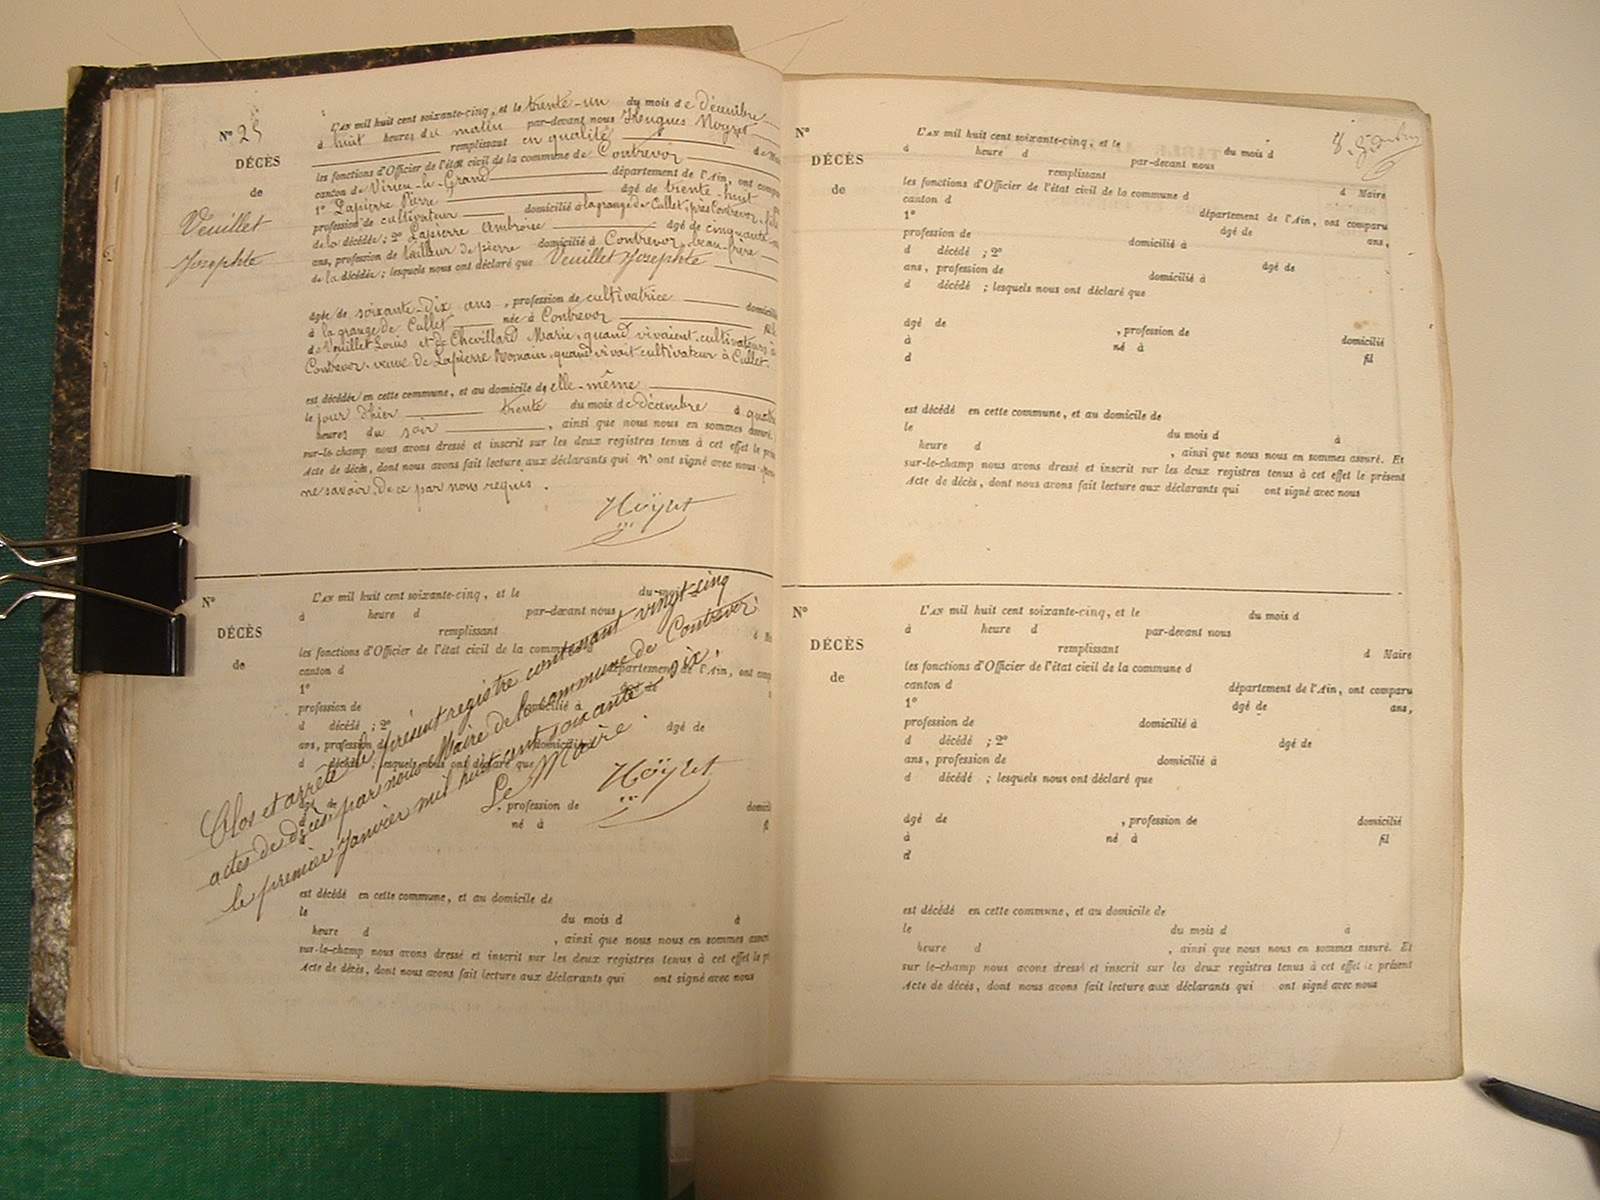 N° 25
DÉCÈS
de
Veuillet
Josephte
L'AN mil huit cent soixante-cinq, et le trente-un du mois de décembre
à huit heures du matin par-devant nous Hugues Noyret
remplissant en qualité de
les fonctions d'Officier de l'état civil de la commune de Contrevoz
canton de Virieu-le-Grand département de l'Ain, ont
1° Lapierre Pierre âgé de trente-huit
profession de cultivateur domicilié à la grange de Cullet, près Contrevoz,
de la décédée ; 2° Lapierre Ambroise âgé de cinquante
ans, profession de tailleur de pierre domicilié à Contrevoz, beau-frère
de la décédée ; lesquels nous ont déclaré que Veuillet Josephte
âgée de soixante-dix ans, profession de cultivatrice
à la grange de Cullet née à Contrevoz
de Veuillet Louis et de Chevillard Marie, quand vivaient cultivateurs à
Contrevoz, veuve de Lapierre Romain, quand vivait cultivateur à Cullet.
est décédée en cette commune, et au domicile de elle-même
le jour d'hier trente du mois de décembre à quatre
heures du soir , ainsi que nous nous en sommes assuré.
sur-le-champ nous avons dressé et inscrit sur les deux registres tenus à cet effet le
Acte de décès, dont nous avons fait lecture aux déclarants qui n'ont signé avec nous
ne savoir, de ce par nous requis.
Noyret
N°
DÉCÈS
de
L'AN mil huit cent soixante-cinq, et le du mois
à heure d par-devant nous
remplissant
les fonctions d'Officier de l'état civil de la commune
canton d département de l'Ain, ont
1°
profession de domicilié à
d décédé ; 2° âgé de
ans, profession d domicilié
d décédé ; lesquels nous ont déclaré que
âgé de , profession de
né à
est décédé en cette commune, et au domicile de
le du mois d à
heure d , ainsi que nous nous en sommes assuré
sur-le-champ nous avons dressé et inscrit sur les deux registres tenus à cet effet le
Acte de décès, dont nous avons fait lecture aux déclarants qui ont signé avec nous
Clos et arrêté le présent registre contenant vingt-cinq
actes de décès, par nous Maire de la commune de Contrevoz
le premier Janvier mil huit cent soixante-six.
Le Maire
Noyret
N°
DÉCÈS
de
L'AN mil huit cent soixante-cinq, et le du mois d
à heure d par-devant nous
remplissant d Maire
les fonctions d'Officier de l'état civil de la commune d
canton d département de l'Ain, ont comparu
1° âgé de ans,
profession de domicilié à
d décédé ; 2° âgé de
ans, profession de domicilié à
d décédé ; lesquels nous ont déclaré que
âgé de , profession de domicilié
à né à fil
d
est décédé en cette commune, et au domicile de
le du mois d à
heure d , ainsi que nous nous en sommes assuré. Et
sur-le-champ nous avons dressé et inscrit sur les deux registres tenus à cet effet le présent
Acte de décès, dont nous avons fait lecture aux déclarants qui ont signé avec nous
N°
DÉCÈS
de
L'AN mil huit cent soixante-cinq, et le du mois d
à heure d par-devant nous
remplissant d Maire
les fonctions d'Officier de l'état civil de la commune d
canton d département de l'Ain, ont comparu
1° âgé de ans,
profession de domicilié à
d décédé ; 2° âgé de
ans, profession de domicilié à
d décédé ; lesquels nous ont déclaré que
âgé de , profession de domicilié
à né à fil
d
est décédé en cette commune, et au domicile de
le du mois d à
heure d , ainsi que nous nous en sommes assuré. Et
sur le-champ nous avons dressé et inscrit sur les deux registres tenus à cet effet le présent
Acte de décès, dont nous avons fait lecture aux déclarants qui ont signé avec nous